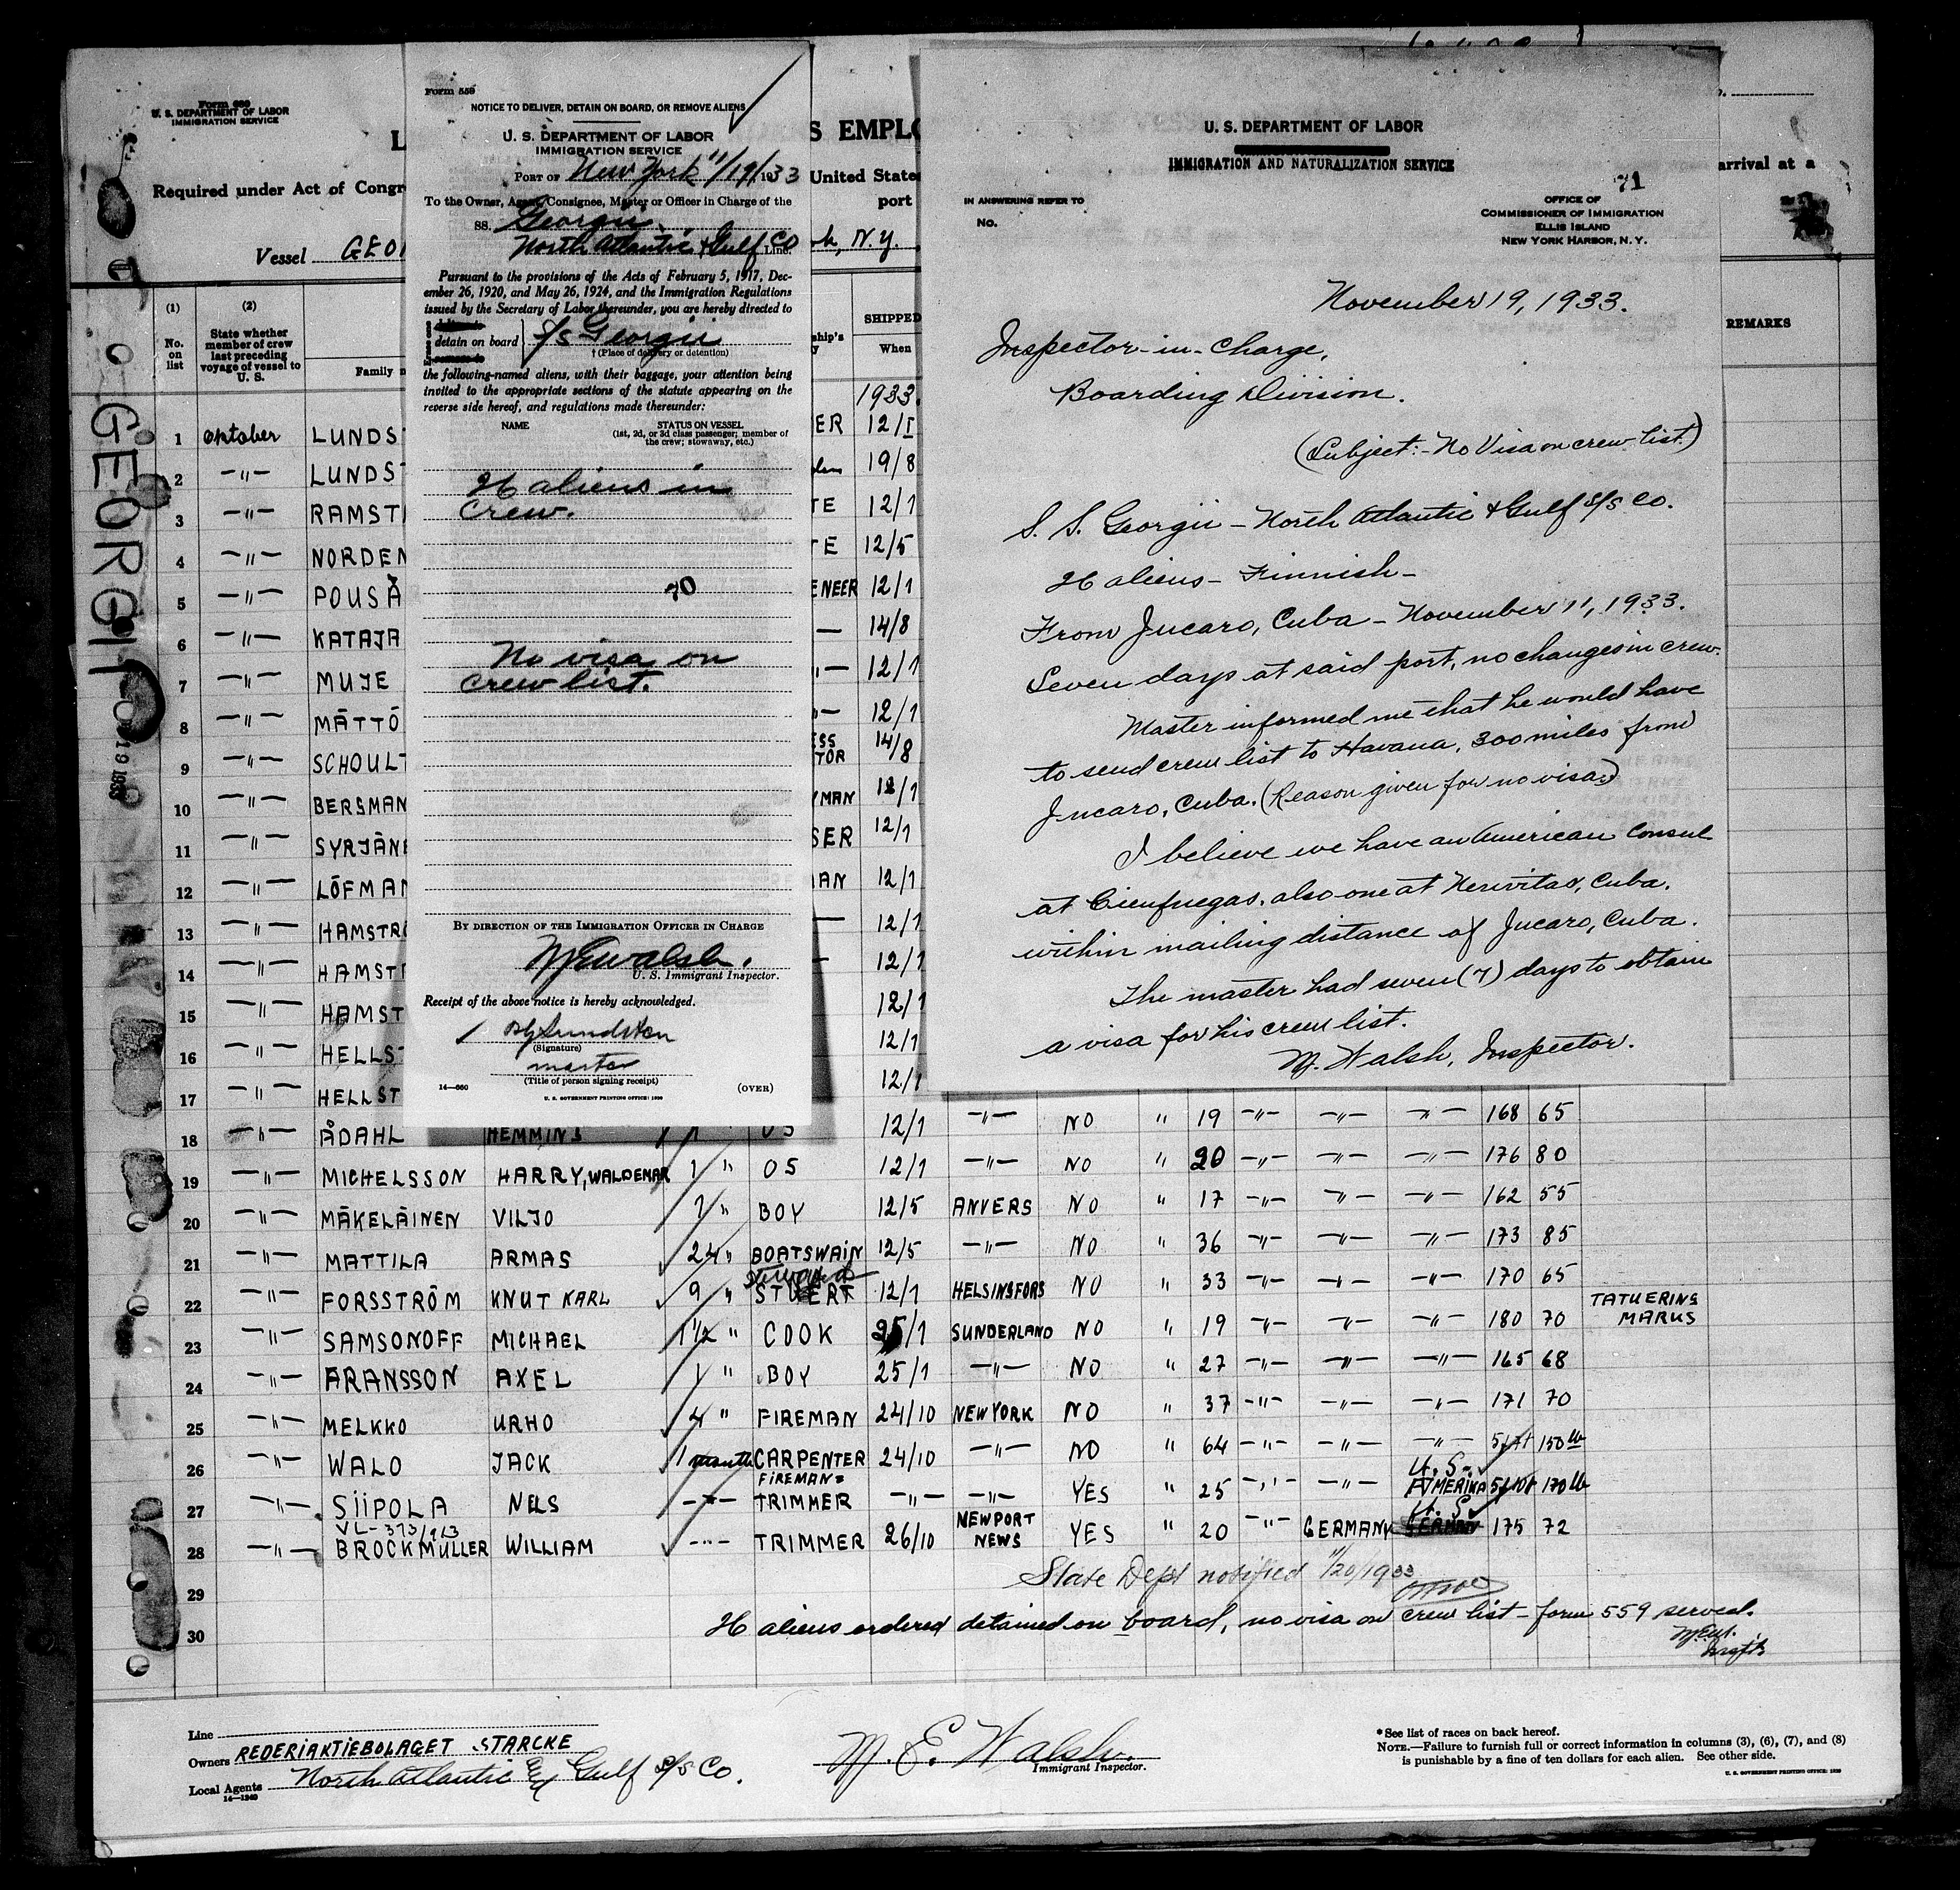 Form 689
U. S. DEPARTMENT OF LABOR
IMMIGRATION SERVICE
L
S EMPLO
Required under Act of Congr
United State
arrival at a
port
Vessel GEOR
N.Y.
GEORGII
NO 19 1933
(1)
(2)
No. on list
State whether member of crew last preceding voyage of vessel to U. S.
Family n
ship's
SHIPPED
When
REMARKS
1933.
1 oktober LUNDS ER 12/I
2 —"— LUNDS 19/8
3 —"— RAMST TE 12/1
4 —"— NORDEN TE 12/5
5 —"— POUSA ENEER 12/1
6 —"— KATAJA — 14/8
7 —"— MUJE "— 12/1
8 —"— MÄTTÖ "— 12/1
9 —"— SCHOULT ESS TOR 14/8
10 —"— BERSMAN YMAN 12/1
11 —"— SYRJÄNE SER 12/1
12 —"— LÖFMAN AN 12/1
13 —"— HAMSTRO — 12/1
14 —"— HAMST — 12/1
15 —"— HAMST 12/1
16 —"— HELLST 12/1
17 —"— HELLST 12/1
18 —"— ÅDAHL HEMMING 1 " OS 12/1 —"— NO " 19 —"— —"— —"— 168 65
19 —"— MICHELSSON HARRY, WALDEMAR 1 " OS 12/1 —"— NO " 20 —"— —"— —"— 176 80
20 —"— MÄKELÄINEN VILJO 1 " BOY 12/5 ANVERS NO " 17 —"— —"— —"— 162 55
21 —"— MATTILA ARMAS 24 " BOATSWAIN 12/5 —"— NO " 36 —"— —"— —"— 173 85
22 —"— FORSSTRÖM KNUT KARL 9 " Steward STUERT 12/1 HELSINGFORS NO " 33 —"— —"— —"— 170 65
23 —"— SAMSONOFF MICHAEL 1½ " COOK 25/1 SUNDERLAND NO " 19 —"— —"— —"— 180 70 TATUERING MARKS
24 —"— ARANSSON AXEL 1 " BOY 25/1 —"— NO " 27 —"— —"— —"— 165 68
25 —"— MELKKO URHO 4 " FIREMAN 24/10 NEW YORK NO " 37 —"— —"— —"— 171 70
26 —"— WALO JACK 1 month CARPENTER 24/10 —"— NO " 64 —"— —"— —"— 150 lb
27 —"— SIIPOLA NELS —"— FIREMAN= TRIMMER —"— —"— YES " 25 —"— —"— U. S. AMERIKA 170 lb
VL-373/963
28 —"— BROCKMULLER WILLIAM —"— TRIMMER 26/10 NEWPORT NEWS YES " 20 —"— GERMANY U. S. 175 72
29
30
State Dept notified 11/20/1933
26 aliens ordered detained on board, no visa on crew list – form 559 served.
M.E.W.
Insp'tr
Line
Owners REDERIAKTIEBOLAGET STARCKE
Local Agents North Atlantic & Gulf S/S Co.
14—1240
M. E. Walsh.
Immigrant Inspector.
*See list of races on back hereof.
NOTE.—Failure to furnish full or correct information in columns (3), (6), (7), and (8)
is punishable by a fine of ten dollars for each alien. See other side.
U. S. GOVERNMENT PRINTING OFFICE: 1930
Form 559
NOTICE TO DELIVER, DETAIN ON BOARD, OR REMOVE ALIENS
U. S. DEPARTMENT OF LABOR
IMMIGRATION SERVICE
PORT OF New York 11/19/1933
To the Owner, Agent, Consignee, Master or Officer in Charge of the
SS. Georgii
North Atlantic & Gulf Co Line.
Pursuant to the provisions of the Acts of February 5, 1917, Dec-
ember 26, 1920, and May 26, 1924, and the Immigration Regulations
issued by the Secretary of Labor thereunder, you are hereby directed to
detain on board S/s Georgii
† (Place of delivery or detention)
the following-named aliens, with their baggage, your attention being
invited to the appropriate sections of the statute appearing on the
reverse side hereof, and regulations made thereunder:
NAME
STATUS ON VESSEL
(1st, 2d, or 3d class passenger; member of
the crew; stowaway, etc.)
26 aliens in
crew.
70
No visa on
crew list.
BY DIRECTION OF THE IMMIGRATION OFFICER IN CHARGE
M E Walsh.
U. S. Immigrant Inspector.
Receipt of the above notice is hereby acknowledged.
(Signature)
master
(Title of person signing receipt)
14—660
(OVER)
U. S. GOVERNMENT PRINTING OFFICE: 1930
U. S. DEPARTMENT OF LABOR
IMMIGRATION AND NATURALIZATION SERVICE
71
IN ANSWERING REFER TO
No.
OFFICE OF
COMMISSIONER OF IMMIGRATION
ELLIS ISLAND
NEW YORK HARBOR, N. Y.
November 19, 1933.
Inspector-in-Charge,
Boarding Division.
(Subject:- No Visa on crew list.)
S. S. Georgii – North Atlantic & Gulf S/S Co.
26 aliens – Finnish –
From Jucaro, Cuba – November 11, 1933.
Seven days at said port, no changes in crew.
Master informed me that he would have
to send crew list to Havana, 300 miles from
Jucaro, Cuba. (Reason given for no visa.)
I believe we have an American Consul
at Cienfuegas, also one at Neuvitas, Cuba.
within mailing distance of Jucaro, Cuba.
The master had seven (7) days to obtain
a visa for his crew list.
M. Walsh, Inspector.